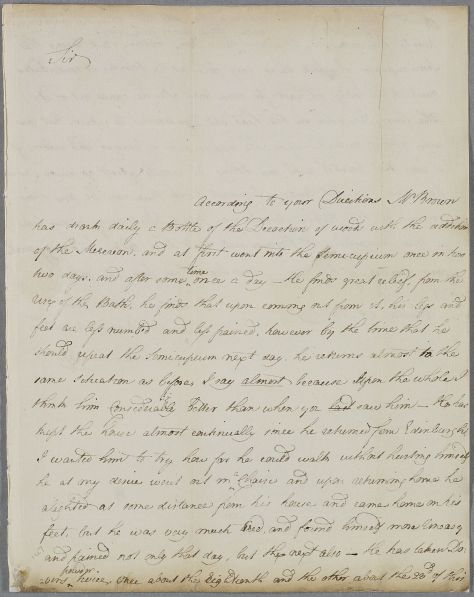 Sir
According to your Directions Mr Brown
has drank daily a Bottle of the Decoction of woods with the addition
of the Mezereon, and at first went into the Semicupium once in
two days, and after some time once a day – He finds great relief from the
use of the Bath, he finds that upon coming out from it, his legs and
feet are less numbed and less pained, however by the time that he
should repeat the Semicupium next day, he returns almost to the
same situation as before, I say almost because upon the whole I
think him considerably better than when you last saw him – He has
kept the house almost continually since he returned from Edinburgh,
I wanted him to try how far he could walk without hurting himself
he at my desire went out in a Chaise and upon returning home he
alighted at some distance from his house and came home on his
feet, but he was very much tired and found himself more uneasy
and pained not only that day, but the next also – He has taken Do
vers powder twice, once about the Eighteenth and the other about the 23d of this